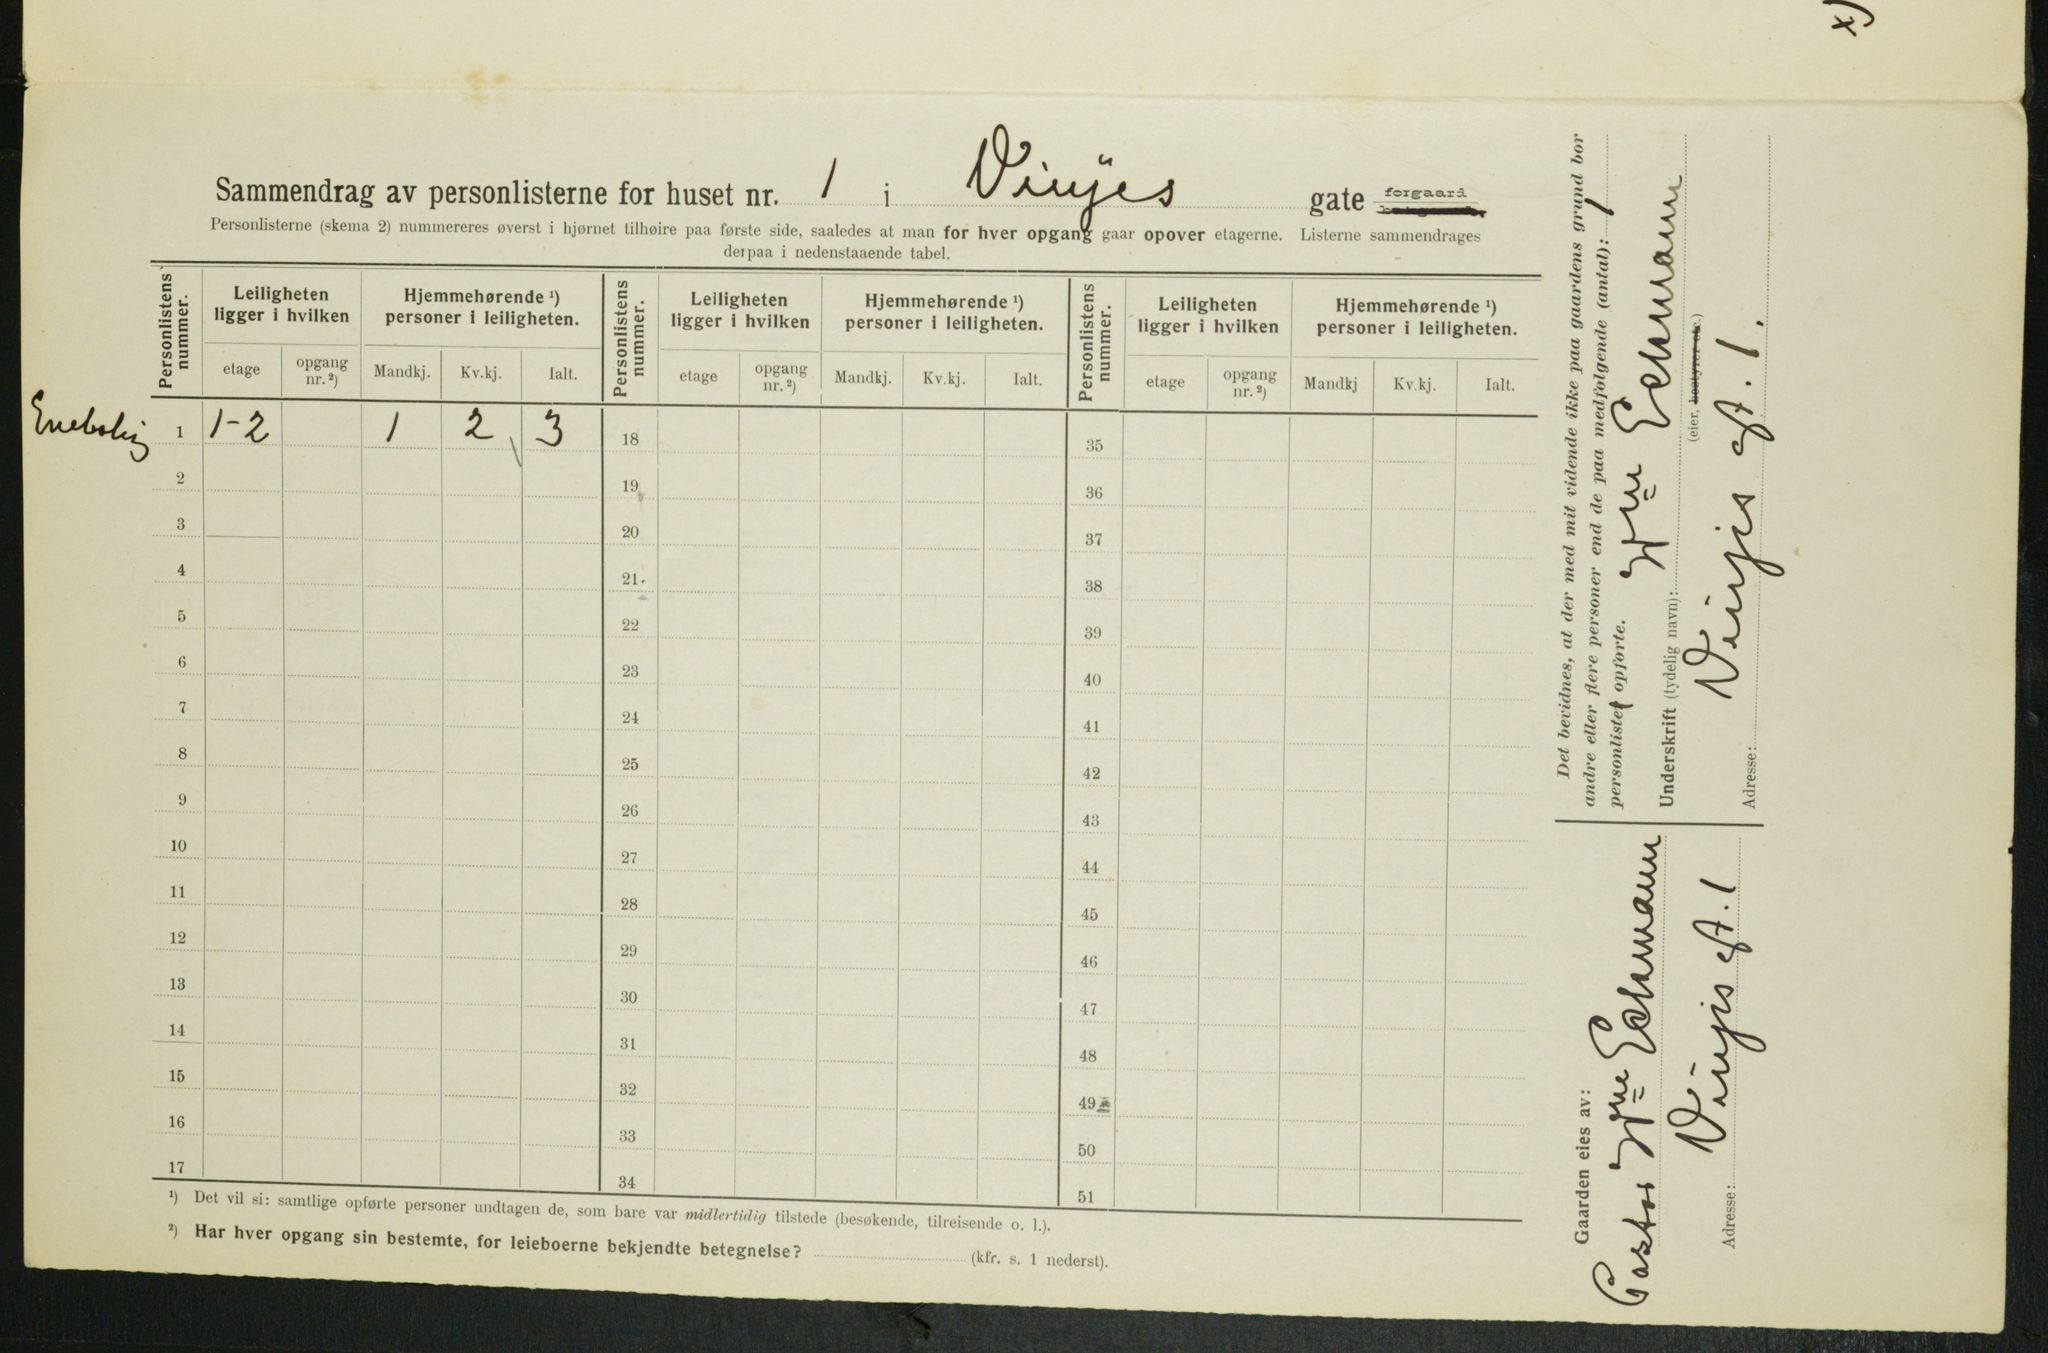 x)
Sammendrag av personlisterne for huset nr. 1 i Vinjes gate forgaard
Personlisterne (skema 2) nummereres øverst i hjørnet tilhøire paa første side, saaledes at man for hver opgang gaar opover etagerne. Listerne sammendrages
derpaa i nedenstaaende tabel.
Personlistens nummer.
Leiligheten ligger i hvilken
Hjemmehørende ¹) personer i leiligheten.
Personlistens nummer.
Leiligheten ligger i hvilken
Hjemmehørende ¹) personer i leiligheten.
Personlistens nummer.
Leiligheten ligger i hvilken
Hjemmehørende ¹) personer i leiligheten.
etage opgang nr. ²) Mandkj. Kv.kj. Ialt. etage opgang nr. ²) Mandkj. Kv.kj. Ialt. etage opgang nr. ²) Mandkj Kv.kj. Ialt.
Enebolig 1 1-2 1 2 3 18 35
2 19 36
3 20 37
4 21 38
5 22 39
6 23 40
7 24 41
8 25 42
9 26 43
10 27 44
11 28 45
12 29 46
13 30 47
14 31 48
15 32 49
16 33 50
17 34 51
¹) Det vil si: samtlige opførte personer undtagen de, som bare var midlertidig tilstede (besøkende, tilreisende o. l.).
²) Har hver opgang sin bestemte, for leieboerne bekjendte betegnelse? (kfr. s. 1 nederst).
Det bevidnes, at der med mit vidende ikke paa gaardens grund bor
andre eller flere personer end de paa medfølgende (antal): 1
personlister opførte.
Underskrift (tydelig navn): Wme Eckmann
(eier, bestyrer etc.)
Adresse: Vinjes gt. 1.
Gaarden eies av:
Pastor Wme Eckmann
Adresse: Vinjes gt. 1